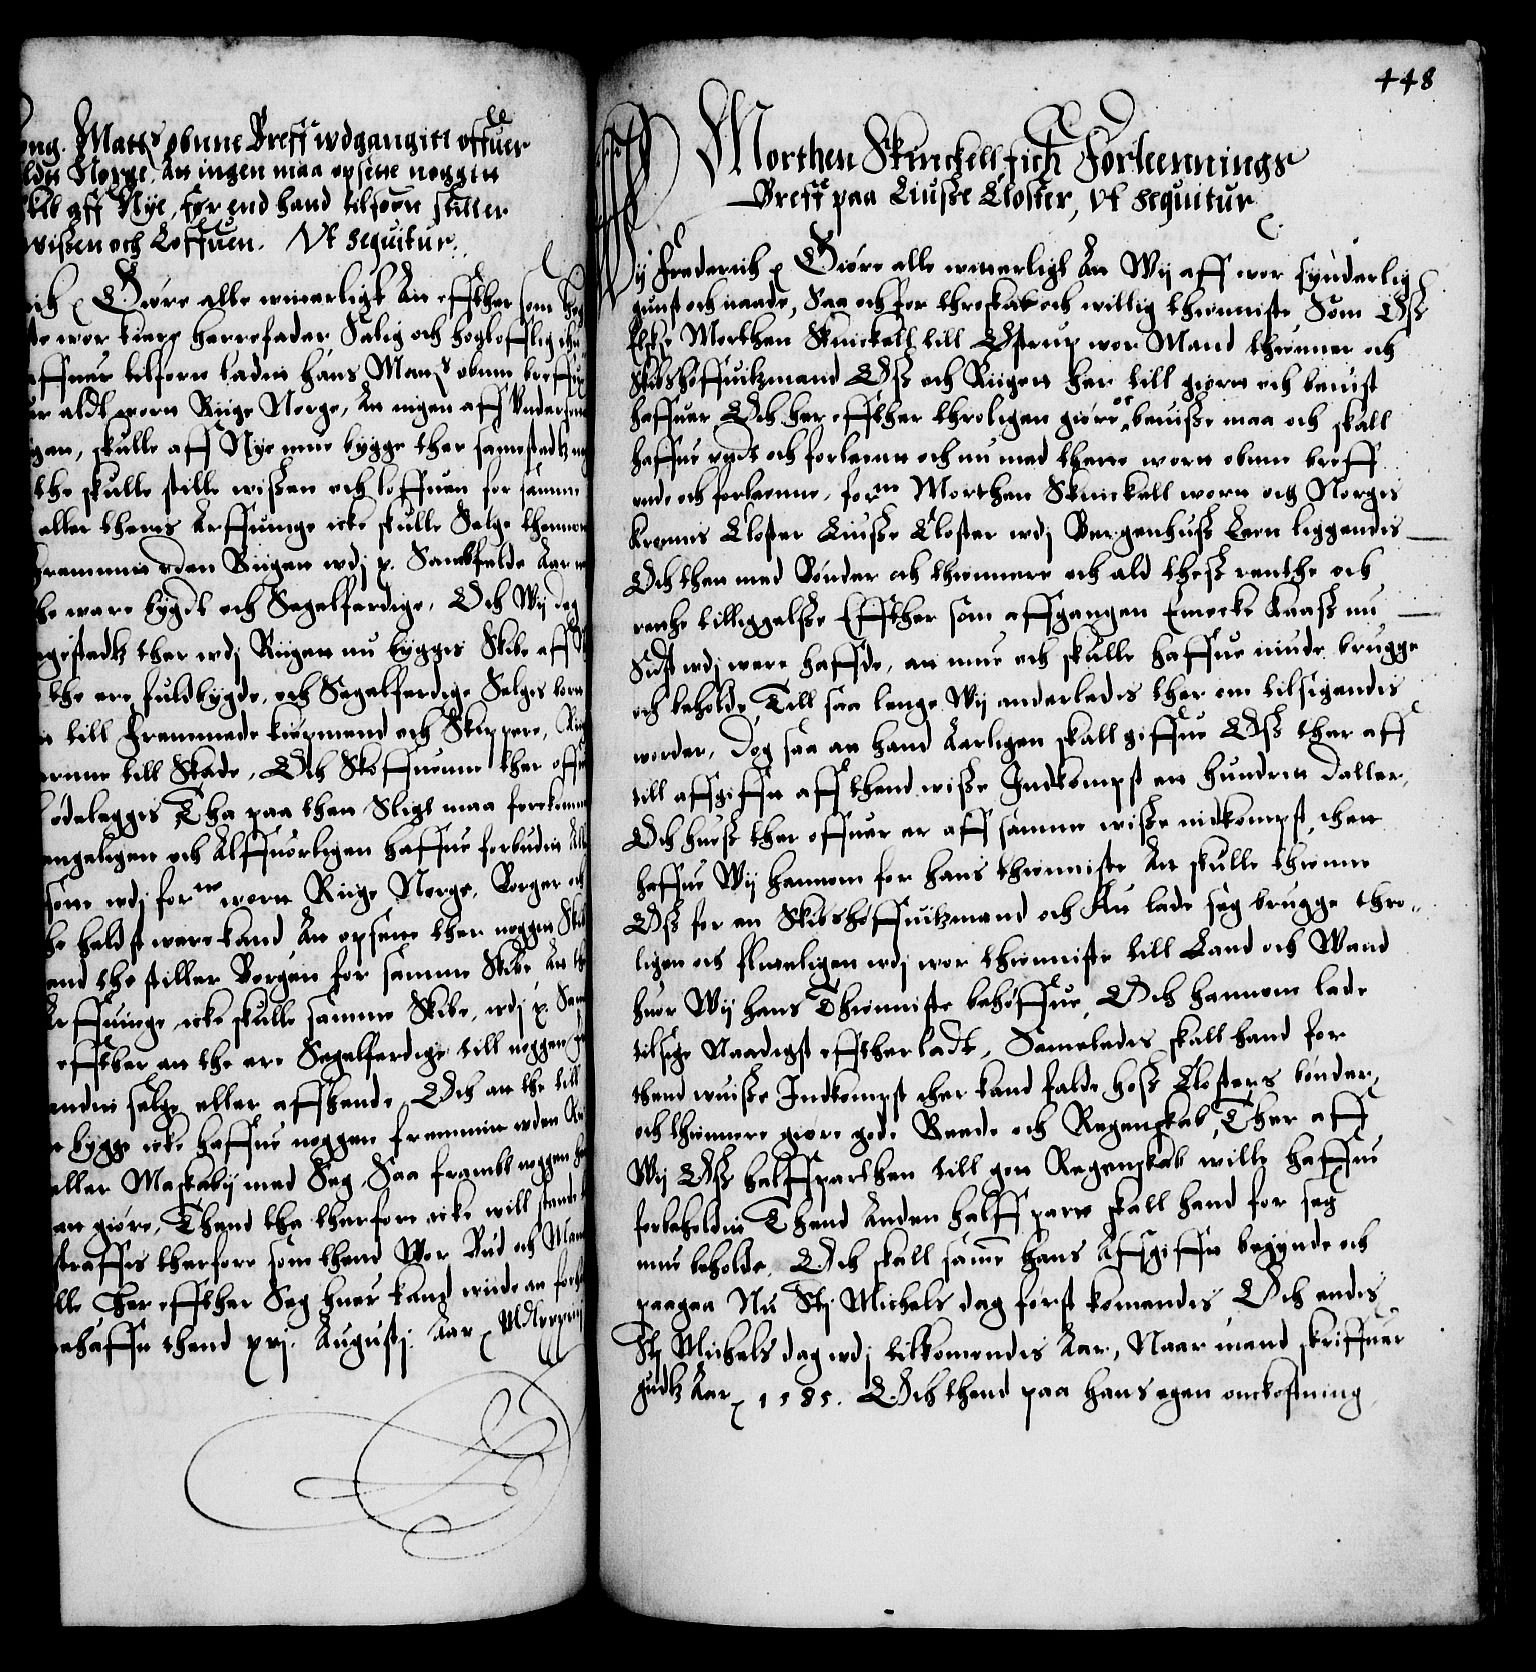 ong. Matts obnne Breff wdgangitt offuer
ldn Norge An ingen maa opsette noggen
skib aff Nye, før end hand tilforn stiller
wissen och Loffuen. Vt sequitur.
ich Giøre alle witterligt An effther som høg
ste wor kiere herrefader Salig och hoglofflig ihu
affuer tilforn ladin hans Matts obnne breffue
er aldt worn Riige Norge, An ingen aff Vndersaa
gen, skulle aff Nye mue bygge ther samestedtz nog
the skulle stille wissen och loffuen for samme
aller thenis Arffuinge icke skulle Selge thennom
fremmen vden Riigen wdj p. Sambfelde Aar
he ware bygdt och Segelferdige, Och Wij dog
ngestedtz ther wdj Riigen nu bygges Skibe aff
the ere fuldbygde, och Segelferdige Selges bort
till fremmede kiøpmend och Skippere, Riig
erne till Skade, Och Skoffuenne ther offuer
ødelegges Tha paa then Sligt maa forekomme
engeligen och Alffuorligen haffue forbudin Alle
som wdj forne worn Riige Norge, Borger och
he heldst were kand An opsette ther noggen Skib
end the stiller Borgen for samme Skibe An the
Arffuinge icke skulle samme Skibe, wdj p. Sam
effther an the ere Segelferdige till noggen fr
enden selge eller affhende, Och an the till
bygge icke haffue noggen fremmen vden Rii
eller Maskabij med Seg, Saa frambt noggen her
an giøre, Thend tha therfore icke will stande
straffis therfore som thend Wor Bud och Mand
lle Her effther Seg huer kand wide an forh
ehaffn thend xvj. Augustj. Aar MDLxxxiiij
448
Morthen Skinckell fick Forleennings
Breff paa Liusse Closter, Vt sequitur
Wij Frederich Giøre alle witterligt An Wij aff wor synderlig
gunst och naade, Saa och for throskab och willig thienniste Som Oss
Elske Morthen Skinckell till Østrup wor Mand thienner och
Skibshoffuitzmand Oss och Riigen her till giorn och beuist
haffuer Och her effther throligen giøre och beuisse maa och skall
haffue vndt och forleent och nu med thette wort obnne breff
vnde och forleenne, forne Morthen Skinckell worn och Norges
Kronnis Closter Liusse Closter wdj Bergenhuss Leen liggendis
Och then med Bønder och thiennere och ald thess renthe och
rette tilliggelsse Effther som affgangen Emecke Kaass nu
Sidst wdj were haffde, an mue och skulle haffue niude brugge
och beholde, Till saa lenge Wij anderledis ther om tilsigendis
worder, Dog saa an hand Aarligen skall giffue Oss ther aff
till affgifft aff thend wisse Indkompst en hundrett Daller,
Och huess ther offuer er aff samme wisse indkompst, then
haffue Wij hannem for hans thienniste An skulle thienne
Oss for en Skibshoffuitzmand och Au lade seg brugge thro-
ligen och flitteligen wdj wor thienniste till Land och Wand
huor Wij hans Thienniste behøffue, Och hannem lade
tilsige Naadigst effther ladt, Sameledis skall hand for
thend wuisse Indkompst ther kand falde hoss Closters bønder
och thiennere giøre gode Reede och Regenskab, Ther aff
Wij Oss halffparthen till gen Regenskab wille haffue
forbeholdin Thend Anden halff part skall hand for seg
mue beholde. Och skall samme hans Affgifft begynde och
paagaa Nu Stj Michels dag først komendis Och endis
Stj Michels dag wdj tilkomendis Aar, Naar mand skriffuer
gudtz Aar 1585. Och thend paa hans egen onckostning